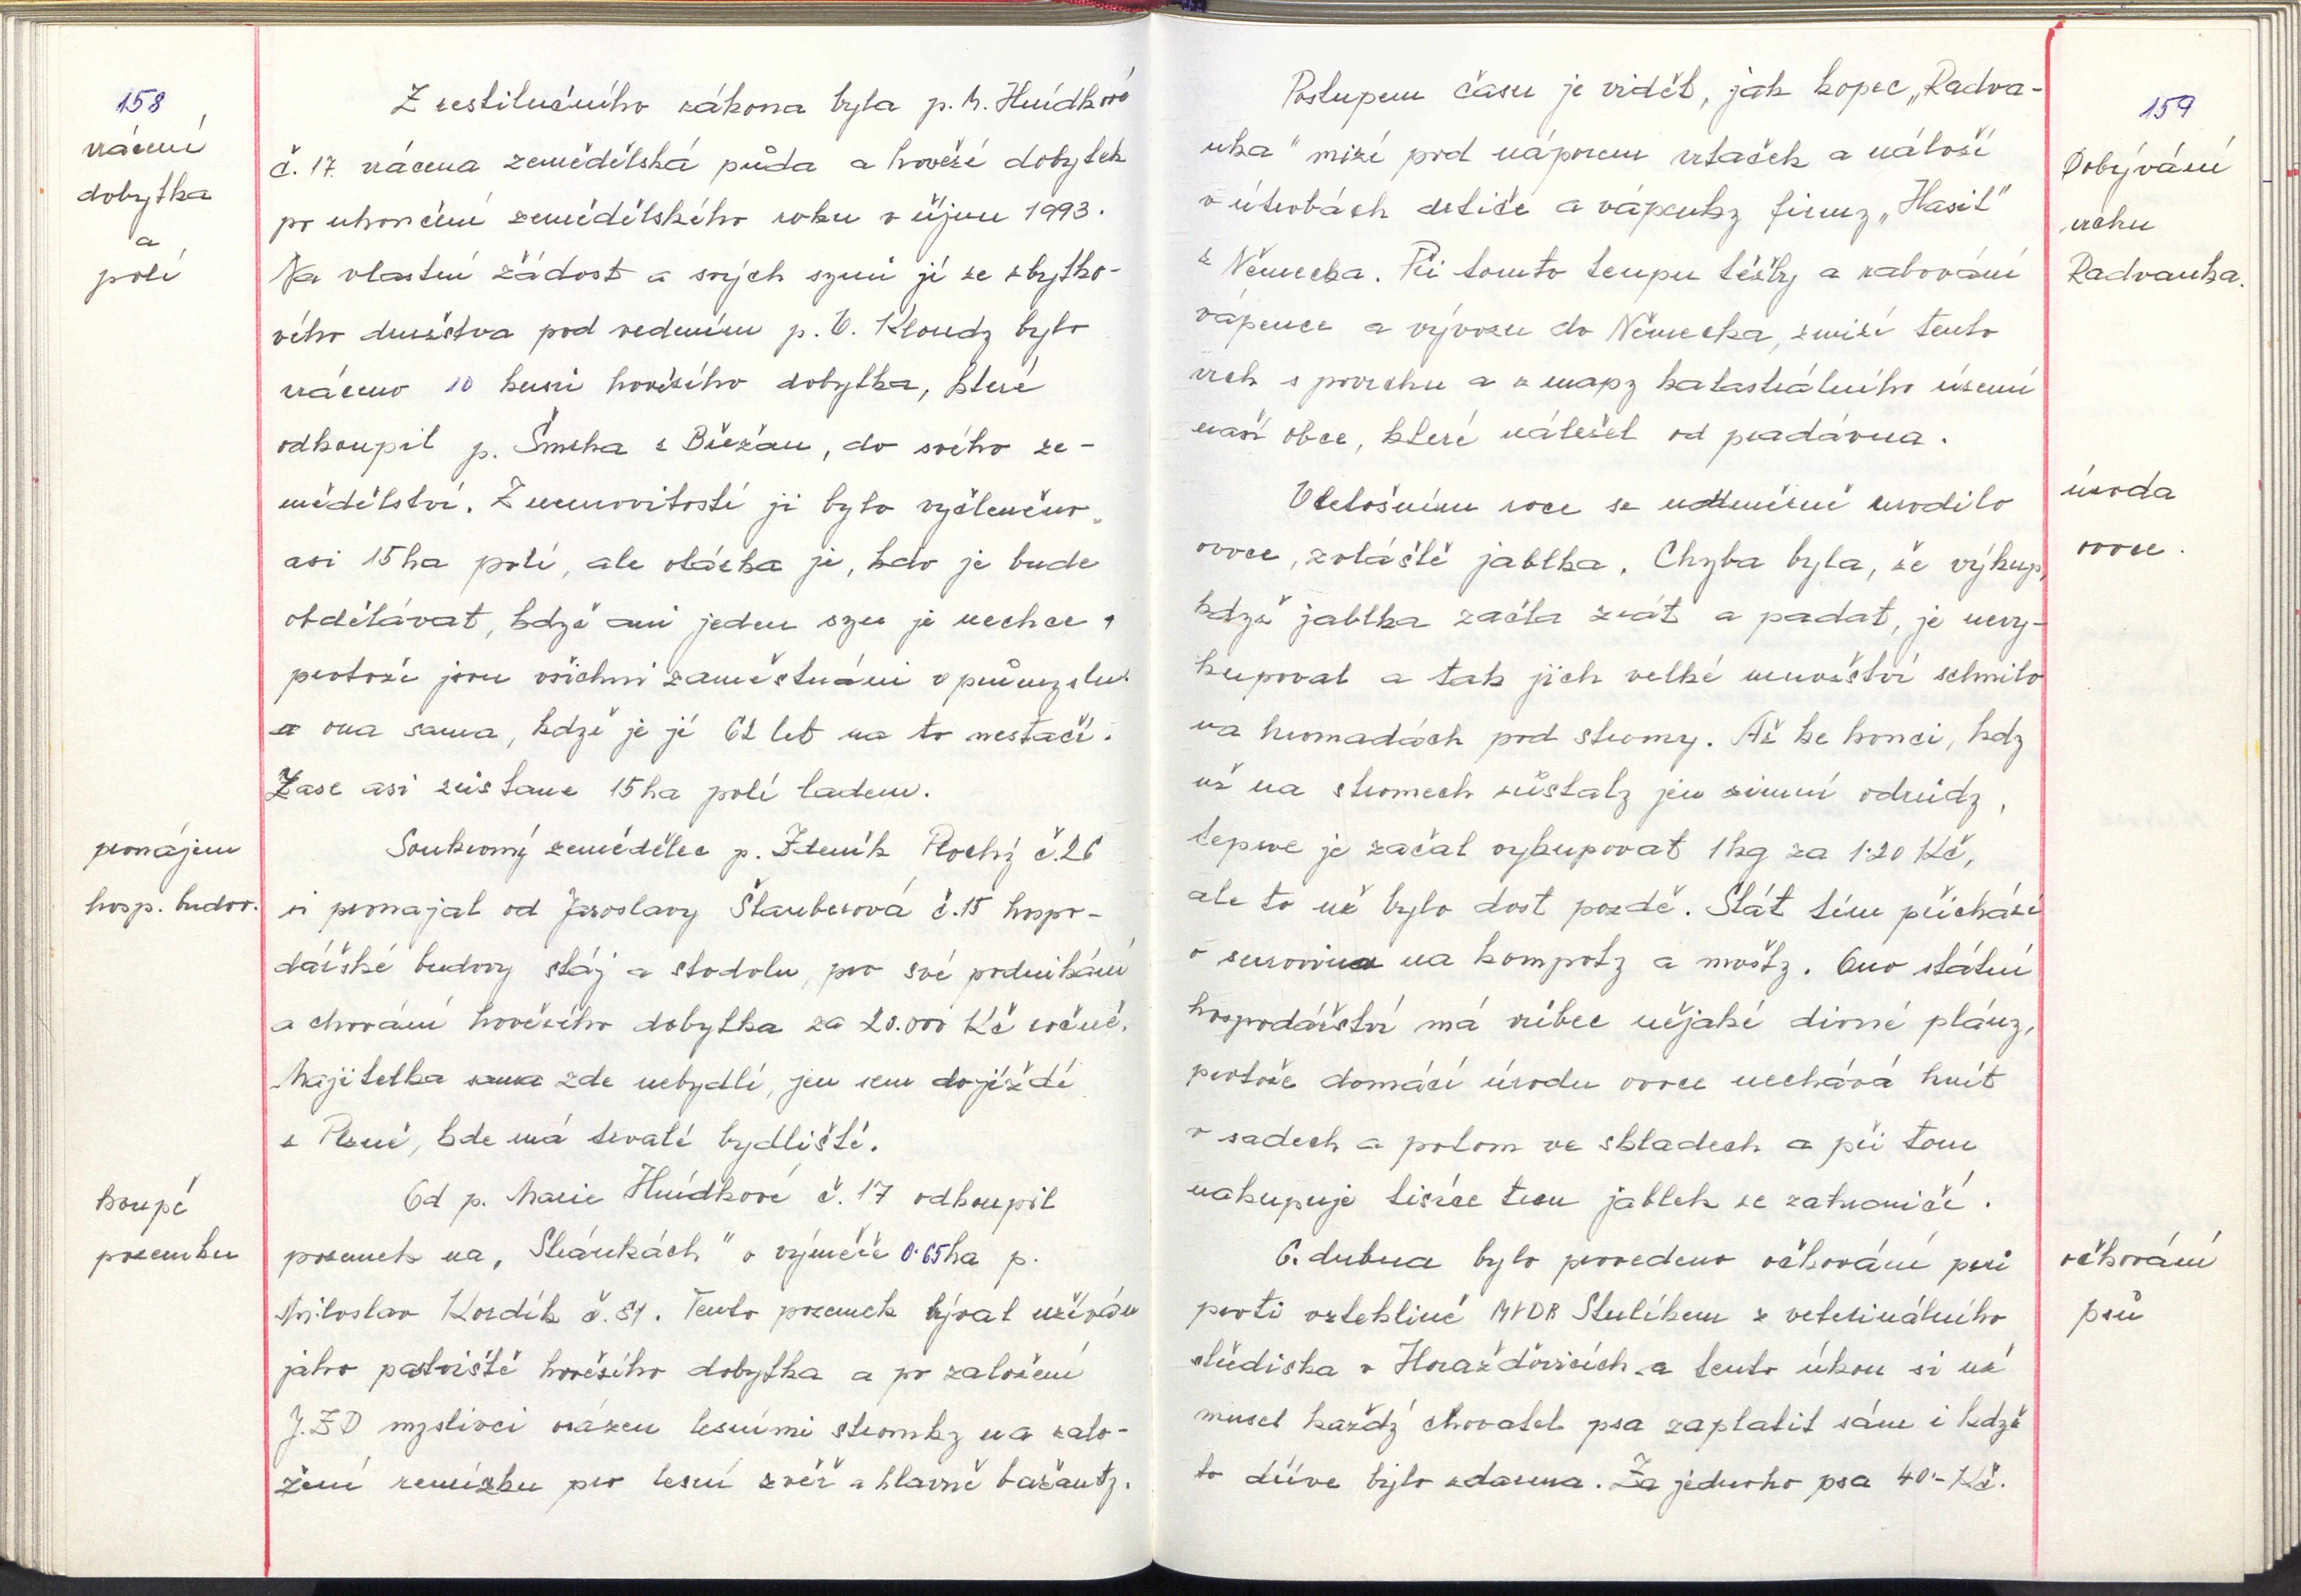 158
vrácení
dobytka
a
polí
Z restitučního zákona byla p. M. Hnídkové
č. 17. vrácena zemědělská půda a hovězí dobytek
po ukončení zemědělského roku v říjnu 1993.
Na vlastní žádost a svých synů jí ze zbytko-
vého družstva pod vedením p. V. Kloudy bylo
vráceno 10 kusů hovězího dobytka, které
odkoupil p. Šmrha z Břežan, do svého ze-
mědělství. Z nemovitostí jí bylo vyčleněno
asi 15 ha polí, ale otázka je, kdo je bude
obdělávat, když ani jeden syn je nechce,
protože jsou všichni zaměstnáni v průmyslu
a ona sama, když je jí 62 let na to nestačí.
Zase asi zůstane 15 ha polí ladem.
pronájem
hosp. budov.
Soukromý zemědělec p. Zdeněk Plochý č. 26
si pronajal od Jaroslavy Štauberová č. 15 hospo-
dářské budovy stáj a stodolu, pro své podnikání
a chování hovězího dobytka za 20.000 Kč ročně.
Majitelka sama zde nebydlí, jen sem dojíždí
z Plzně, kde má trvalé bydliště.
koupě
pozemku
Od p. Marie Hnídkové č. 17 odkoupil
pozemek na „Stránkách" o výměře 0.65 ha p.
Miloslav Kordík č. 81. Tento pozemek býval užíván
jako pastviště hovězího dobytka a po založení
J.Z.D myslivci osázen lesními stromky na zalo-
žení remízku pro lesní zvěř a hlavně bažanty.
159
Dobývání
vrchu
Radvanka.
Postupem času je vidět, jak kopec „Radva-
nka" mizí pod náporem vrtaček a náloží
v útrobách drtiče a vápenky firmy „Hasit"
z Německa. Při tomto tempu těžby a rabování
vápence a vývozu do Německa, zmizí tento
vrch s povrchu a z mapy katastrálního území
naší obce, které náležel od pradávna.
úroda
ovoce.
V letošním roce se nadměrně urodilo
ovoce, zvláště jablka. Chyba byla, že výkup,
když jablka začla zrát a padat, je nevy-
kupoval a tak jich velké množství schnilo
na hromadách pod stromy. Až ke konci, kdy
už na stromech zůstaly jen zimní odrůdy,
teprve je začal vykupovat 1 kg za 1.20 Kč,
ale to už bylo dost pozdě. Stát tím přichází
o surovinu na kompoty a mošty. Ono státní
hospodářství má vůbec nějaké divné plány,
protože domácí úrodu ovoce nechává hnít
v sadech a potom ve skladech a při tom
nakupuje tisíce tun jablek ze zahraničí.
očkování
psů
6. dubna bylo provedeno očkování psů
proti vzteklině MVDR Stulíkem z veterinálního
střediska v Horažďovicích a tento úkon si už
musel každý chovatel psa zaplatit sám i když
to dříve bylo zdarma. Za jednoho psa 40.- Kč.